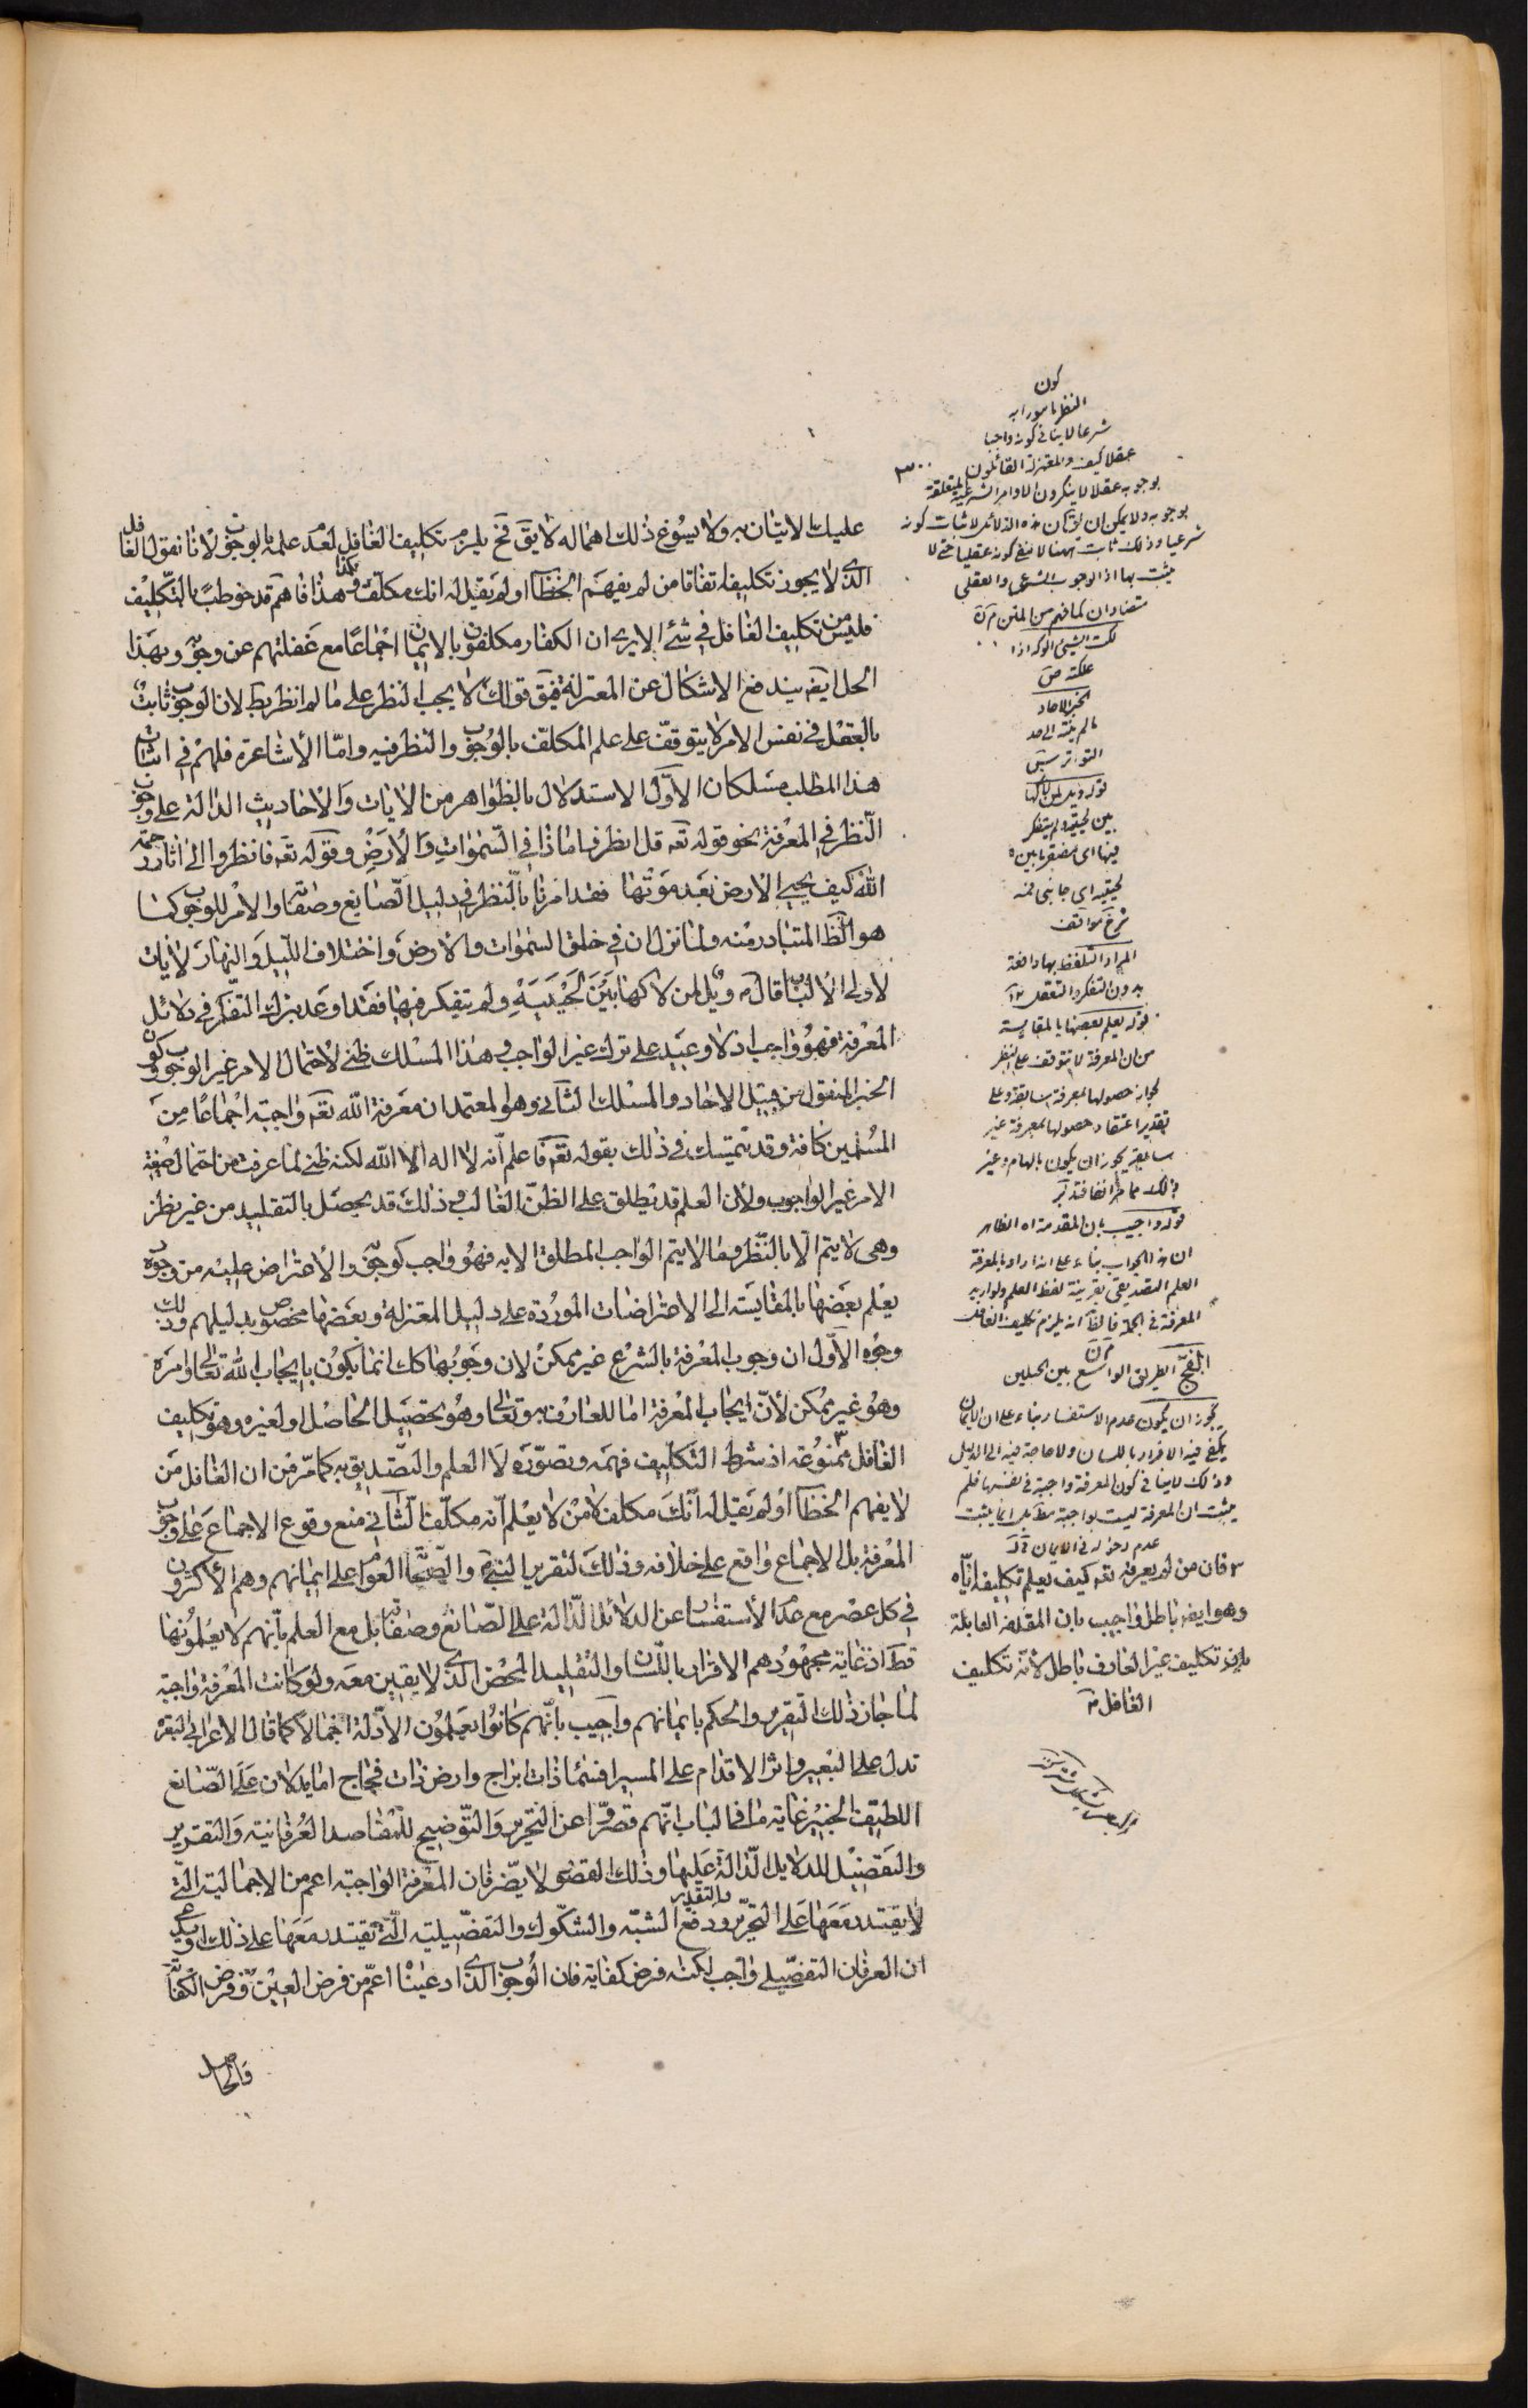 عليك الاتيان به ولا يسوغ ذلك اهماله لا يق فح يلزم تكليف الغافل لعدم علمه بالوجوب لانا نقول الغافل
الذى لا يجوز تكليفه اتفاقا من لم يفهم الخطاب او لم يقيل له انك مكلف بكذا وهذا فاهم قد خوطب بالتكليف
فليس من تكليف الغافل في شئ الا يرى ان الكفار مكلفون بالايمان اجماعا مع غفلتهم عن وجوبه وبهذا
الحل ايضه يندفع الاشكال عن المعتزلة فيق قولك لا يجب النظر على ما لم انظر بط لان الوجوب ثابت
بالعقل في نفس الامر لا يتوقف على علم المكلف بالوجوب والنظر فيه واما الاشاعرة فلهم في اثبات
هذا المطلب مسلكان الاول الاستدلال بالظواهر من الايات والاحاديث الدالة على وجوب
النظر في المعرفة نحو قوله تعه قل انظروا ماذا في السموات والارض وقوله تعه فانظروا الى اثار رحمة
الله كيف يحيي الارض بعد موتها فقد امرنا بالنظر في دليل الصانع وصفاته والامر للوجوب كما
هو الظ المتبادر منه ولما نزل ان في خلق السموات والارض واختلاف الليل والنهار لايات
لاولى الالباب قال م ويل لمن لاكها بين لحييه ولم يتفكر فيها فقد اوعد بترك التفكر في دلائل
المعرفة فهو واجب اذ لا وعيد على ترك غير الواجب وهذا المسلك ظني لاحتمال الامر غير الوجوب وكون
الخبر المنقول من قبيل الاحاد والمسلك الثاني وهو المعتمد ان معرفة الله تعه واجبة اجماعا من
المسلمين كافة وقد يتمسك في ذلك بقوله تعه فاعلم انه لا اله الا الله لكنه ظني لما عرفت من احتمال صيغة
الامر غير الوجوب ولان العلم قد يطلق على الظن الغالب وذلك قد يحصل بالتقليد من غير نظر
وهى لا يتم الا بالنظر وما لا يتم الواجب المطلق الا به فهو واجب كوجوبه والاعتراض عليه من وجوه
يعلم بعضها بالمقايسة الى الاعتراضات الموردة على دليل المعتزلة وبعضها مخصوص بدليلهم وذلك
وجوه الاول ان وجوب المعرفة بالشرع غير ممكن لان وجوبها كك انما يكون بايجاب الله تعالى اوامره
وهو غير ممكن لان ايجاب المعرفة اما للعارف به وتعالى وهو تحصيل الحاصل او لغيره وهو تكليف
الغافل ممنوعة اذ شرط التكليف فهمه وتصوره لا العلم والتصديق به كما مر من ان الغافل من
لا يفهم الخطاب او لم يقيل له انك مكلف لا من لا يعلم انه مكلف الثاني منع وقوع الاجماع على وجوب
المعرفة بل الاجماع واقع على خلافه وذلك لتقرير النبي والصحابة العوام على ايمانهم وهم الاكثرون
في كل عصر مع عدم الاستفسار عن الدلائل الدالة على الصانع وصفاته بل مع العلم بانهم لا يعلمونها
قط اذ غاية مجهودهم الاقرار باللسان والتقليد المحض الذى لا يقين معه ولو كانت المعرفة واجبة
لما جاز ذلك التقرير والحكم بايمانهم واجيب بانهم كانوا يعلمون الادلة اجمالا كما قال الاعرابي البعرة
تدل على البعير واثر الاقدام على المسير افسماء ذات ابراج وارض ذات فجاج اما يدلان على الصانع
اللطيف الخبير غاية ما في الباب انهم قصروا عن التحرير والتوضيح للمقاصد العرفانية والتقرير
والتفصيل للدلايل الدالة عليها وذلك القصور لا يضر فان المعرفة الواجبة اعم من الاجمالية التي
لا يقتدر معها على التحرير والتقدير ودفع الشبه والشكوك والتفصيلية التي تقتدر معها على ذلك او
ان العرفان التفصيلي واجب لكنه فرض كفاية فان الوجوب الذى ادعيناه اعم من فرض العين وفرض الكفاية
فالحاصل
كون
النظر مامورا به
شرعا لا ينافي كونه واجبا
عقلا كيف والمعتزلة القائلون
بوجوبه عقلا لا ينكرون الاوامر الشرعية المتعلقة
بوجوبه ولا يمكن ان يق كان هذه الدلائل لاثبات كونه
شرعيا وذلك ثابت بهما لا نفي كونه عقليا حتى لا
يثبت بها اذ الوجوب الشرعي والعقلي
متضادان كما فهم من المتن م ره
لكت الشيئ الوكه اذا
علكته ص
الخبر الاحاد
ما لم ينته الى حد
التواتر س
قوله ويل لمن لاكها
بين لحييه ولم يتفكر
فيها اى مضغها بين
لحييه اى جانبي فمه
شرح مواقف
المراد التلفظ بها دافعة
بدون التفكر والتعقل
قوله يعلم بعضها بالمقايسة
من ان المعرفة لا تتوقف على النظر
لجواز حصولها بمعرفة سابقة وعلى
تقدير اعتقاد حصولها بمعرفة غير
سابقة يجوز ان يكون بالهام وغير
ذلك مما مر انفا فتدبر
قوله واجيب بان المقدمة اه الظاهر
ان هذا الجواب بناء على انه اراد بالمعرفة
العلم التصديقي بقرينة لفظ العلم ولو اريد
المعرفة في الجملة فالق انه يلزم تكليف الغافل
الفج الطريق الواسع بين الجبلين
يجوز ان يكون عدم الاستفسار بناء على ان الايمان
يكفي فيه الاقرار باللسان ولا حاجة فيه الى الدليل
وذلك لا ينافي كون المعرفة واجبة في نفسها فلم
يثبت ان المعرفة ليست بواجبة مط بل انما يثبت
عدم دخوله في الايمان
٣ فان من لم يعرفه تعه كيف يعلم تكليفه اياه
وهو ايضه باطل واجيب بان المقدمة القايلة
بان تكليف غير العارف باطل لانه تكليف
الغافل